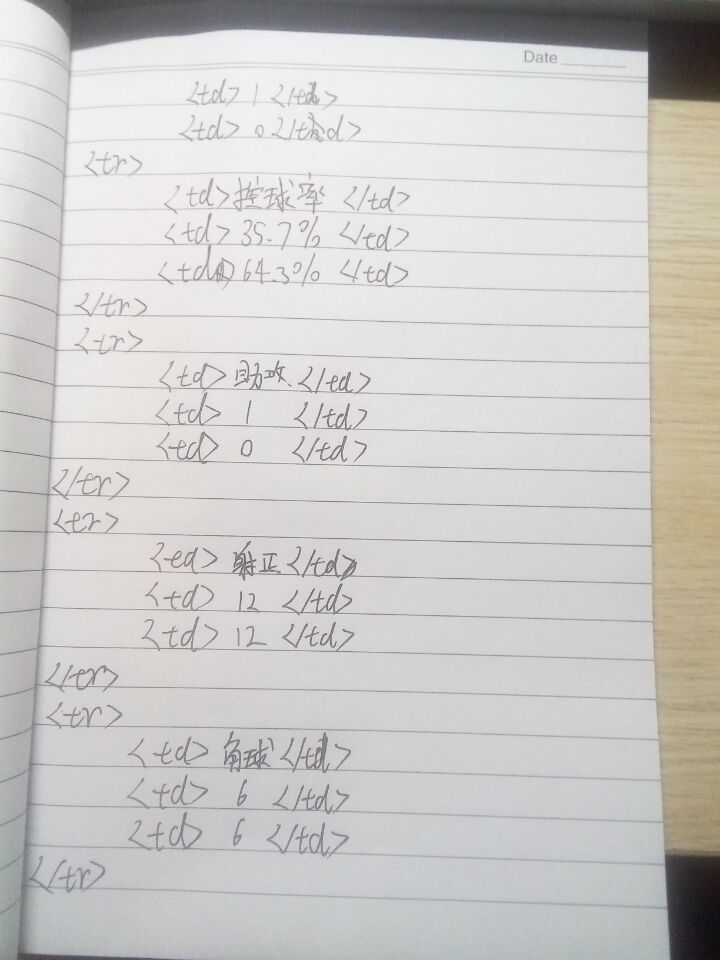 Date
<td> 1 </td>
<td> 0 </td>
<tr>
<td> 控球率 </td>
<td> 35.7% </td>
<td> 64.3% </td>
</tr>
<tr>
<td> 助攻 </td>
<td> 1 </td>
<td> 0 </td>
</tr>
<tr>
<td> 射正 </td>
<td> 12 </td>
<td> 12 </td>
</tr>
<tr>
<td> 角球 </td>
<td> 6 </td>
<td> 6 </td>
</tr>